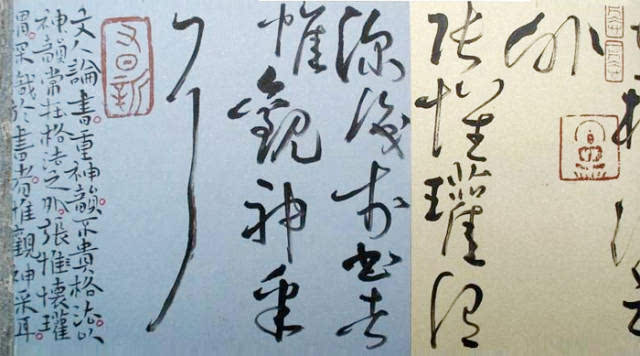 外
張懷瓘謂
深識於書者
惟觀神采
耳
又日新
文人論書。重神韻。不貴格法。以
神韻常在格法之外。張惟懷瓘
謂。深識於書者。惟觀神采耳